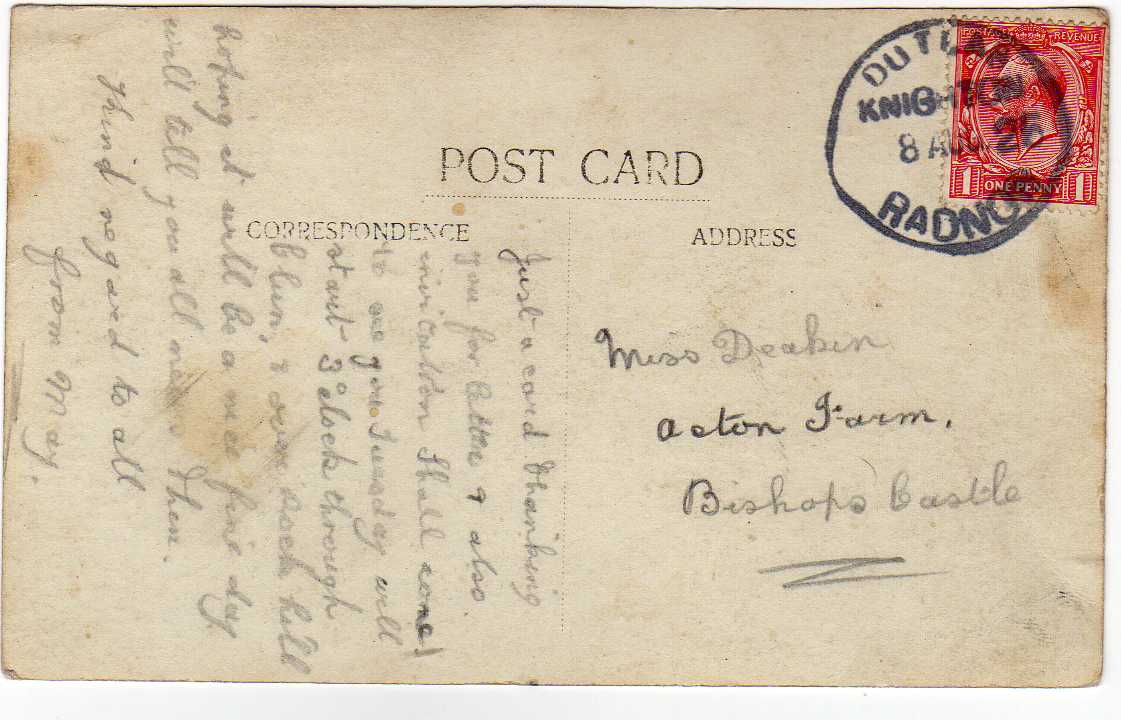 POST CARD
CORRESPONDENCE
ADDRESS
POSTAGE REVENUE
1 ONE PENNY 1
KNIGHTON
8 AUG
RADNOR
Just a card thanking
you for letter & also
invitation Shall come
to see you Tuesday will
start 3 oclock through
Clun, & over Rock hill
hoping it will be a nice fine day
will tell you all news then.
Kind regard to all
from May.
Miss Deakin
Acton Farm.
Bishops Castle